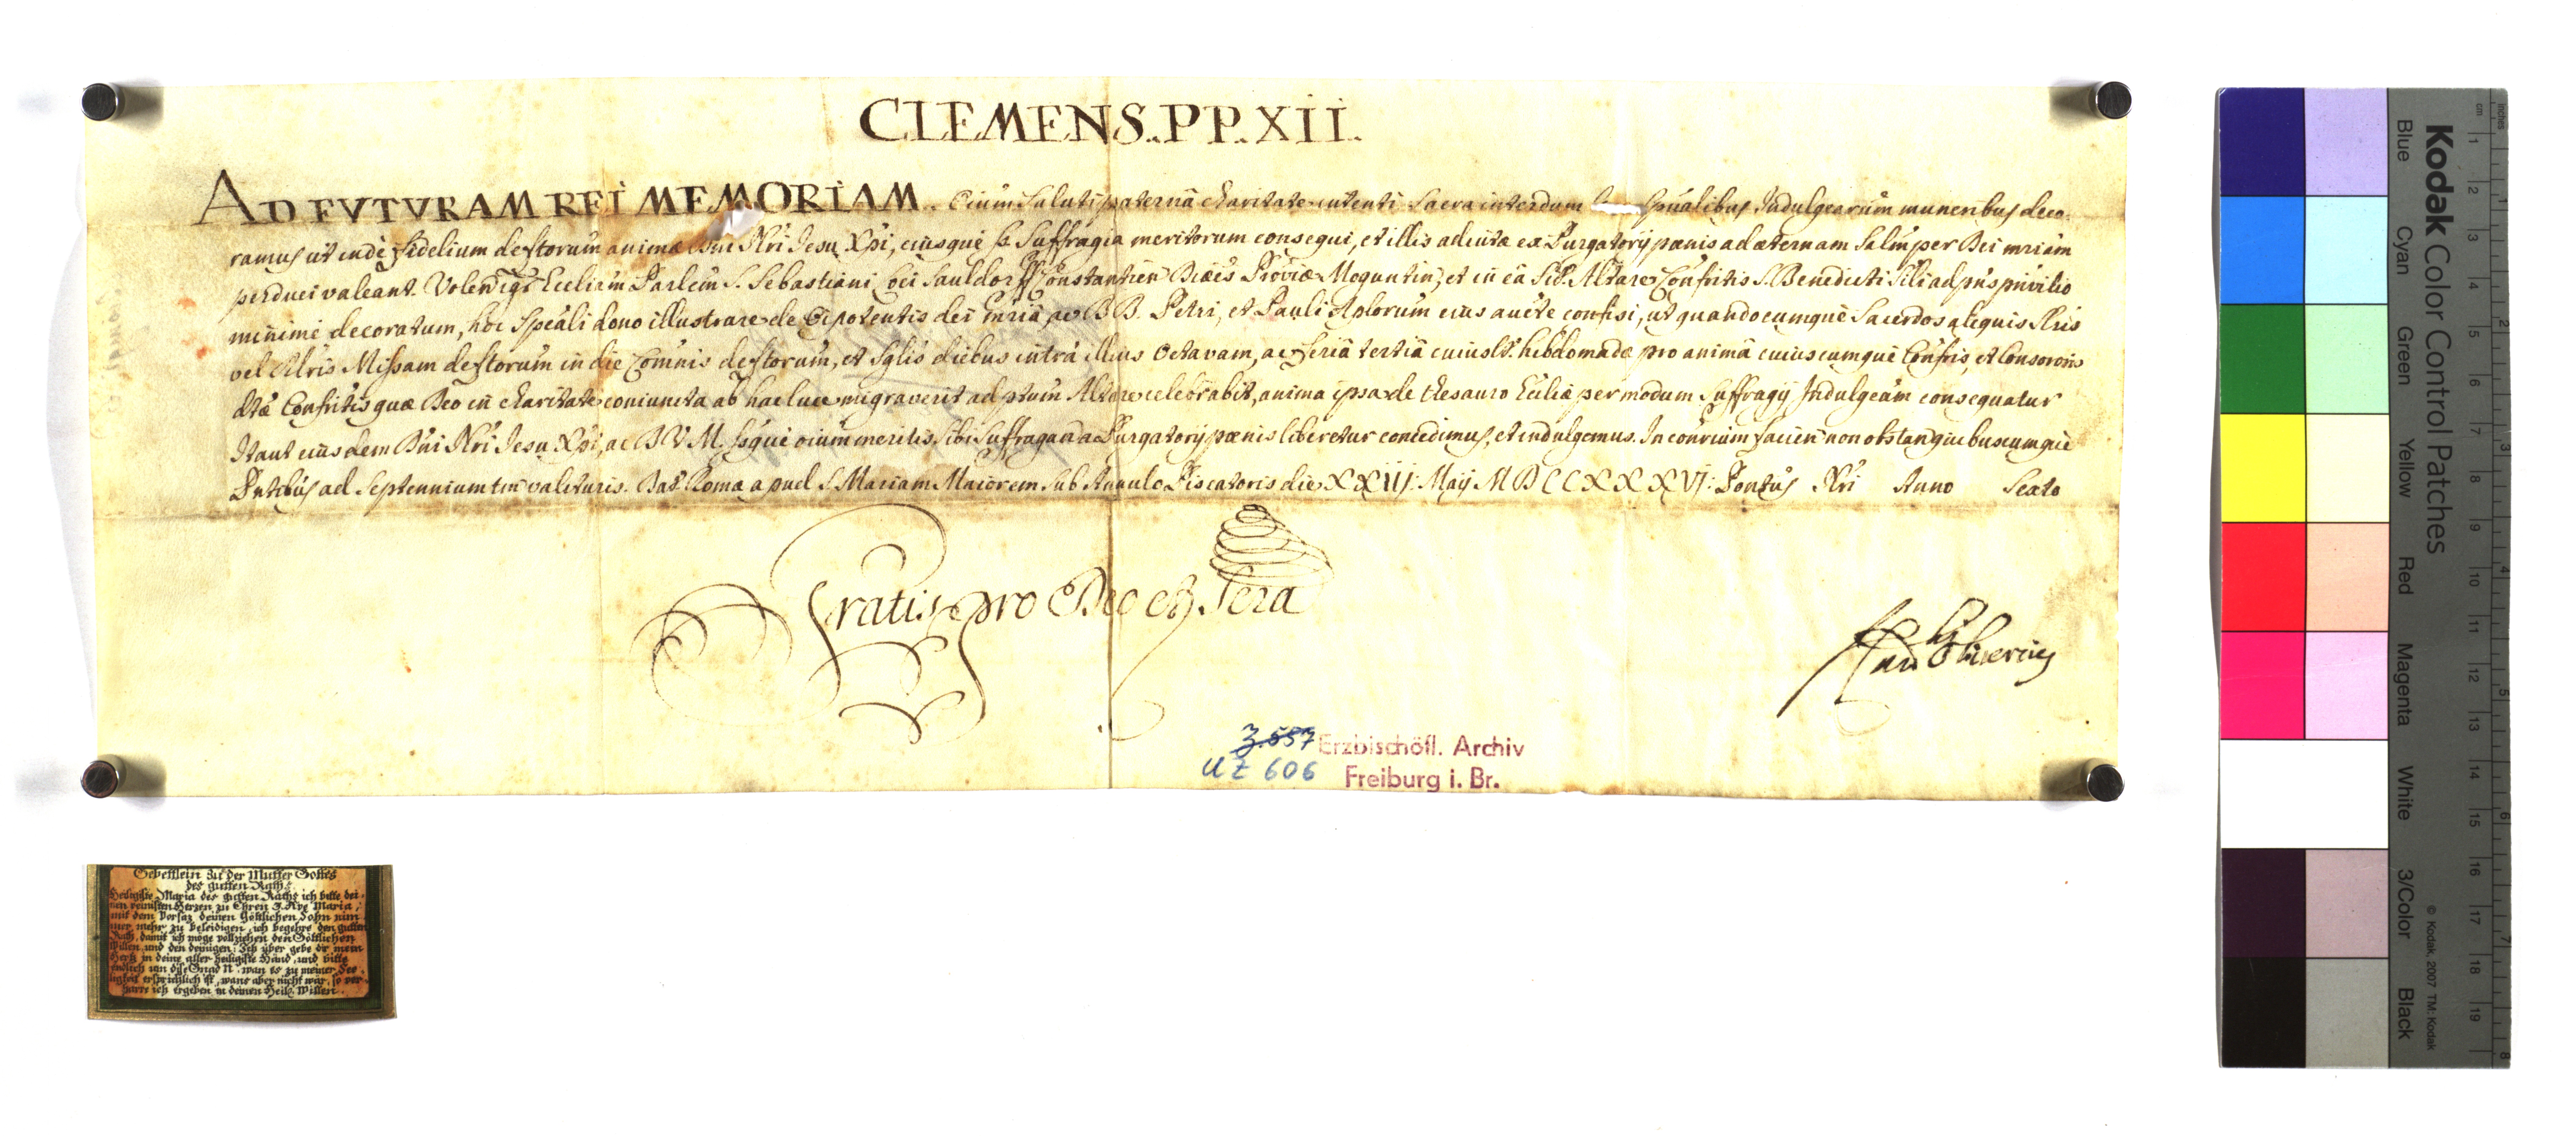 CLEMENS..PP.XII.
AD FVTVRAM REI MEMORIAM.. Oium Saluti paterna charitate intenti Sacra interdum Spualibus Indulgearum muneribus deco-
ramus ut inde fidelium deftorum animæ Dni Nri Jesu Xpi, eiusque Suffragia meritorum consequi, et illis adiutæ ex Purgatorij pænis ad æternam Salm per Dei mriam
perduci valeant. Volen igr Eccliam Parlem S. Sebastiani Loci Sauldorff Constantien Diæcs Proviæ Moguntin, et in ea Sit. Altare Confritis S. Benedicti Sili ad pns privilio
minime decoratum, hoc Speali dono illustrare de Oipotentis dei mria, ac B B. Petri, et Pauli Aplorum eius aucte confisi, ut quandocumque Sacerdos aliquis Slris
vel Rlris Missam deftorum in die Comnis deftorum, et Sglis diebus intra illius Octavam, ac feria tertia cuiuslt. hebdomadæ pro anima cuiuscumque Confris, et Consororis
dtæ Confritis quæ Deo in charitate coniuncta ab hac luce migraverit ad ptum Altare celebrabit, anima ipsa de thesauro Eccliæ per modum Suffragij Indulgeam consequatur
Ita ut eiusdem Dni Nri Jesu Xpi, ac B V M. Ssque oium meritis Sibi Suffragan a Purgatorij pænis liberetur concedimus, et indulgemus. In contrium facien non obstan quibuscumque
Pntibus ad Septennium tm valituris. Dat Romæ apud S. Mariam Maiorem Sub Annulo Piscatoris die XXIIJ: Maij MDCCXXXVJ: Pontus Nri Anno Sexto
Gratis pro Deo et Scra
3.557 Erzbischöfl. Archiv
UZ 606 Freiburg i. Br.
Gebettlein zu der Mutter Gottes
des gutten Raths.
Heiligste Maria des gutten Raths ich bitte dei-
nen reinisten Herzen zu Ehren 3. Ave Maria,
mit dem Vorsaz deinen Göttlichen Sohn nim
mer mehr zu beleidigen, ich begehre den gutten
Rath, damit ich möge vollziehen den Göttlichen
Willen und den deinigen: Ich über gebe dir mein
Hertz in deine aller heiligste Händ, und bitte
endlich um dise Gnad N. wan es zu meiner See-
ligkeit ersprießlich ist, wans aber nicht wär, so ver-
harre ich ergeben in deinen Heilg. Willen.
Kodak Color Control Patches
Blue Cyan Green Yellow Red Magenta White 3/Color Black
© Kodak, 2007 TM: Kodak
cm 1 2 3 4 5 6 7 8 9 10 11 12 13 14 15 16 17 18 19
inches 1 2 3 4 5 6 7 8